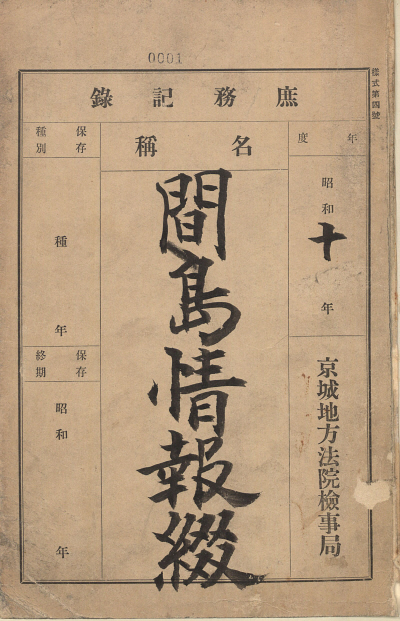 0001
樣式第四號
庶務記錄
年度
昭和十年
京城地方法院檢事局
名稱
間島情報綴
保存種別
種年
保存終期
昭和年